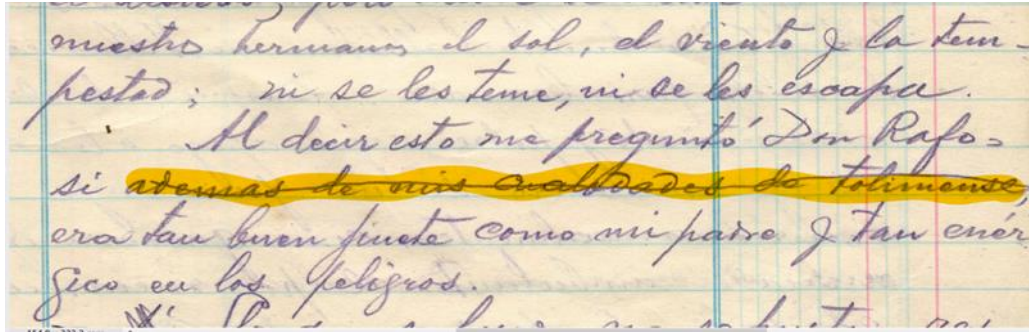 nuestro hermano, el sol, el viento y la tem-
pestad; ni se les teme, ni se les escapa.
Al decir esto me preguntó Don Rafo=
si ademas de mis cualidades de tolimense,
era tan buen jinete como mi padre y tan enér
gico en los peligros.